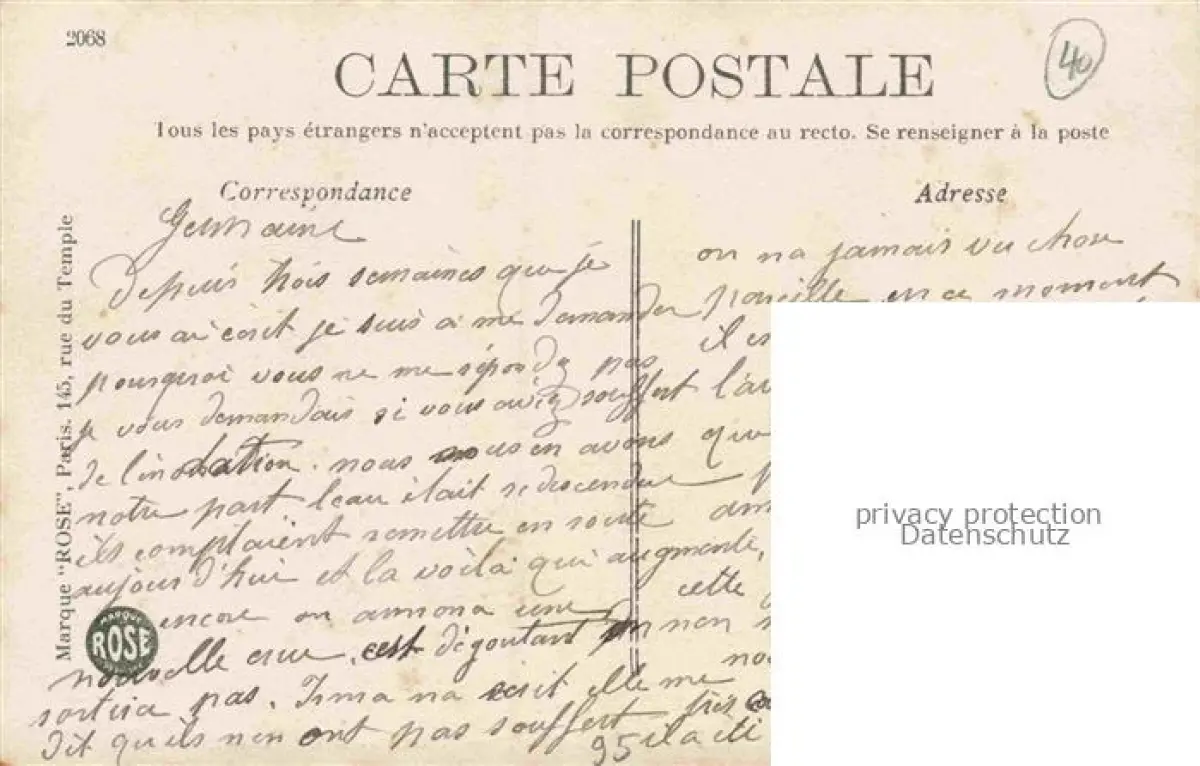 2068
40
CARTE POSTALE
Tous les pays étrangers n'acceptent pas la correspondance au recto. Se renseigner à la poste
Correspondance
Adresse
Marque "ROSE", Paris. 145, rue du Temple
MARQUE
ROSE
Germaine
Depuis trois semaines que je
vous ai écrit je suis a me demander
pourquoi vous ne me répondez pas
je vous demandais si vous aviez souffert
de l'inondation. nous nous en avons
notre part l'eau était redescendue
ils comptaient remettre en route
aujourd'hui et la voilà qui augmente,
encore on annona une
nouvelle crue, c'est dégoutant on nen
sortira pas. Irma na écrit elle me
dit quils nen ont pas souffert
on na jamais vu chose
pareille en ce moment
il es
l'av
que
cette
no
près
95 il a été
privacy protection
Datenschutz